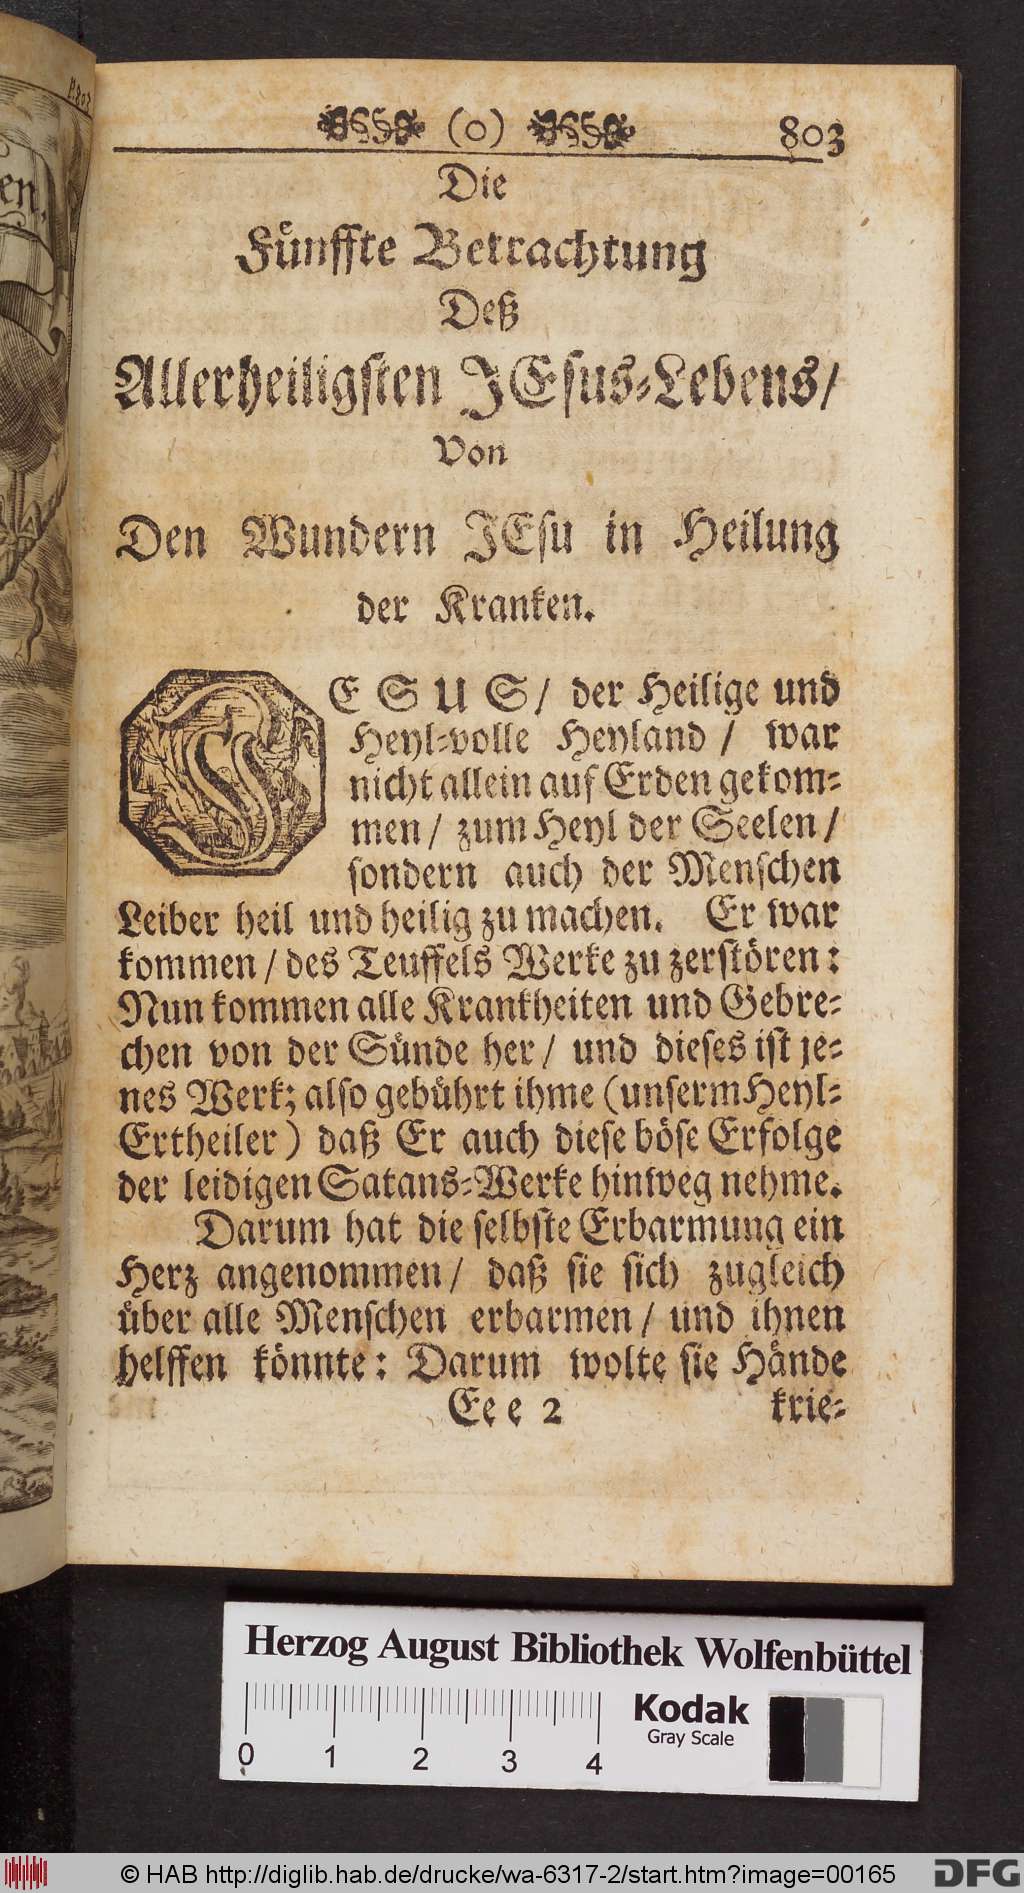 P. 802
en.
(o) 803
Die
Fünffte Betrachtung
Deß
Allerheiligsten JEsus-Lebens/
Von
Den Wundern JEsu in Heilung
der Kranken.
JESUS/ der Heilige und
Heyl-volle Heyland / war
nicht allein auf Erden gekom-
men / zum Heyl der Seelen /
sondern auch der Menschen
Leiber heil und heilig zu machen. Er war
kommen / des Teuffels Werke zu zerstören:
Nun kommen alle Krankheiten und Gebre-
chen von der Sünde her / und dieses ist je-
nes Werk; also gebührt ihme (unserm Heyl-
Ertheiler) daß Er auch diese böse Erfolge
der leidigen Satans-Werke hinweg nehme.
Darum hat die selbste Erbarmung ein
Herz angenommen / daß sie sich zugleich
über alle Menschen erbarmen / und ihnen
helffen könnte: Darum wolte sie Hände
Eee 2 krie-
Herzog August Bibliothek Wolfenbüttel
0 1 2 3 4
Kodak
Gray Scale
© HAB http://diglib.hab.de/drucke/wa-6317-2/start.htm?image=00165
DFG